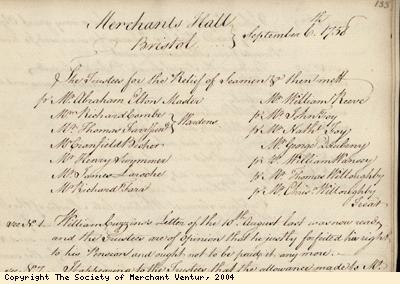 133
Merchants Hall
Bristol
September 6th 1738
The Trustees for the Relief of Seamen &c then mett
pr Mr Abraham Elton Master
Mr William Reeve
Mr Richard Combe
pr Mr John Foy
Mr Thomas Farr Junr
Wardens
pr Mr Nathl Foy
Mr Cranfield Becher
Mr George Daubeny
Mr Henry Swymmer
pr Mr William Wansey
Mr James Laroche
pr Mr Thomas Willoughby
Mr Richard Farr
pr Mr Chrisr Willoughby
Treasr
William Legguins Letter of the 10th August last was now read
and the Trustees are of Opinion that he justly forfeited his right
to his Pension and ought not to be paid it any more
It appearing to the Trustees that the allowance made to Mr
Copyright The Society of Merchant Ventur, 2004